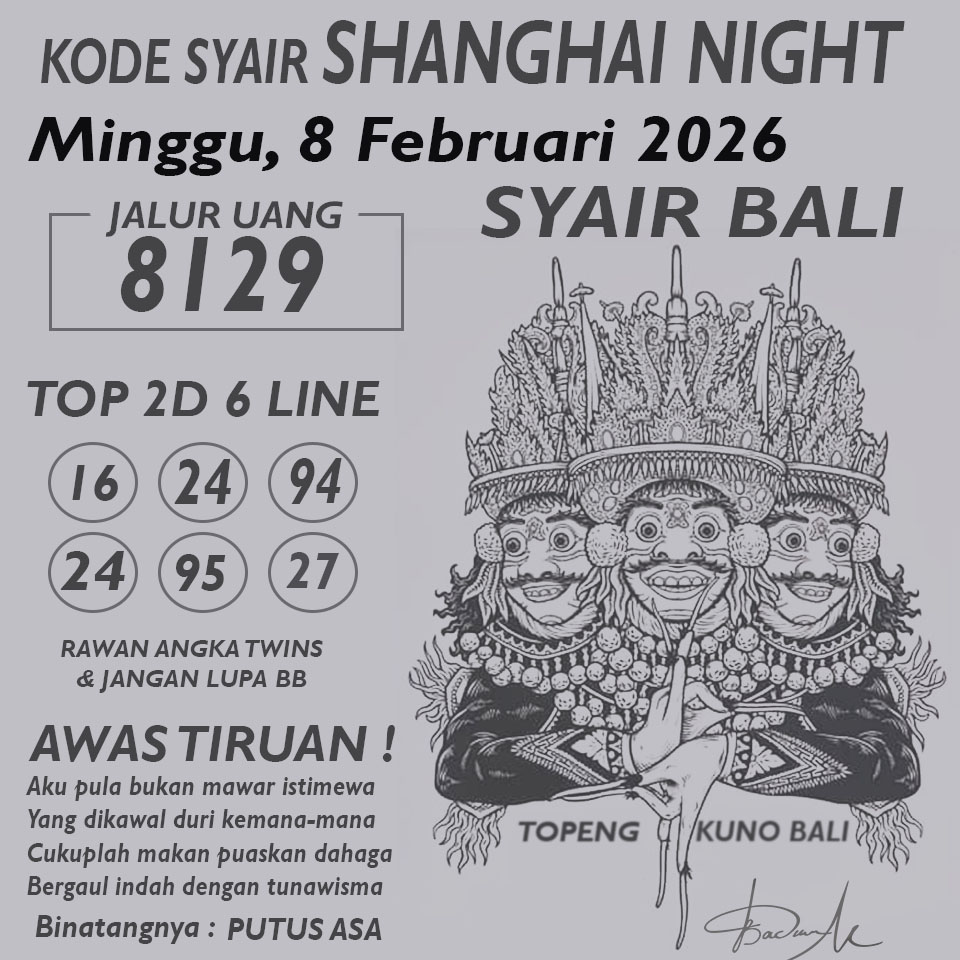 KODE SYAIR SHANGHAI NIGHT
Minggu, 8 Februari 2026
SYAIR BALI
JALUR UANG
8129
TOP 2D 6 LINE
16 24 94
24 95 27
RAWAN ANGKA TWINS
& JANGAN LUPA BB
AWAS TIRUAN !
Aku pula bukan mawar istimewa
Yang dikawal duri kemana-mana
Cukuplah makan puaskan dahaga
Bergaul indah dengan tunawisma
Binatangnya : PUTUS ASA
TOPENG KUNO BALI